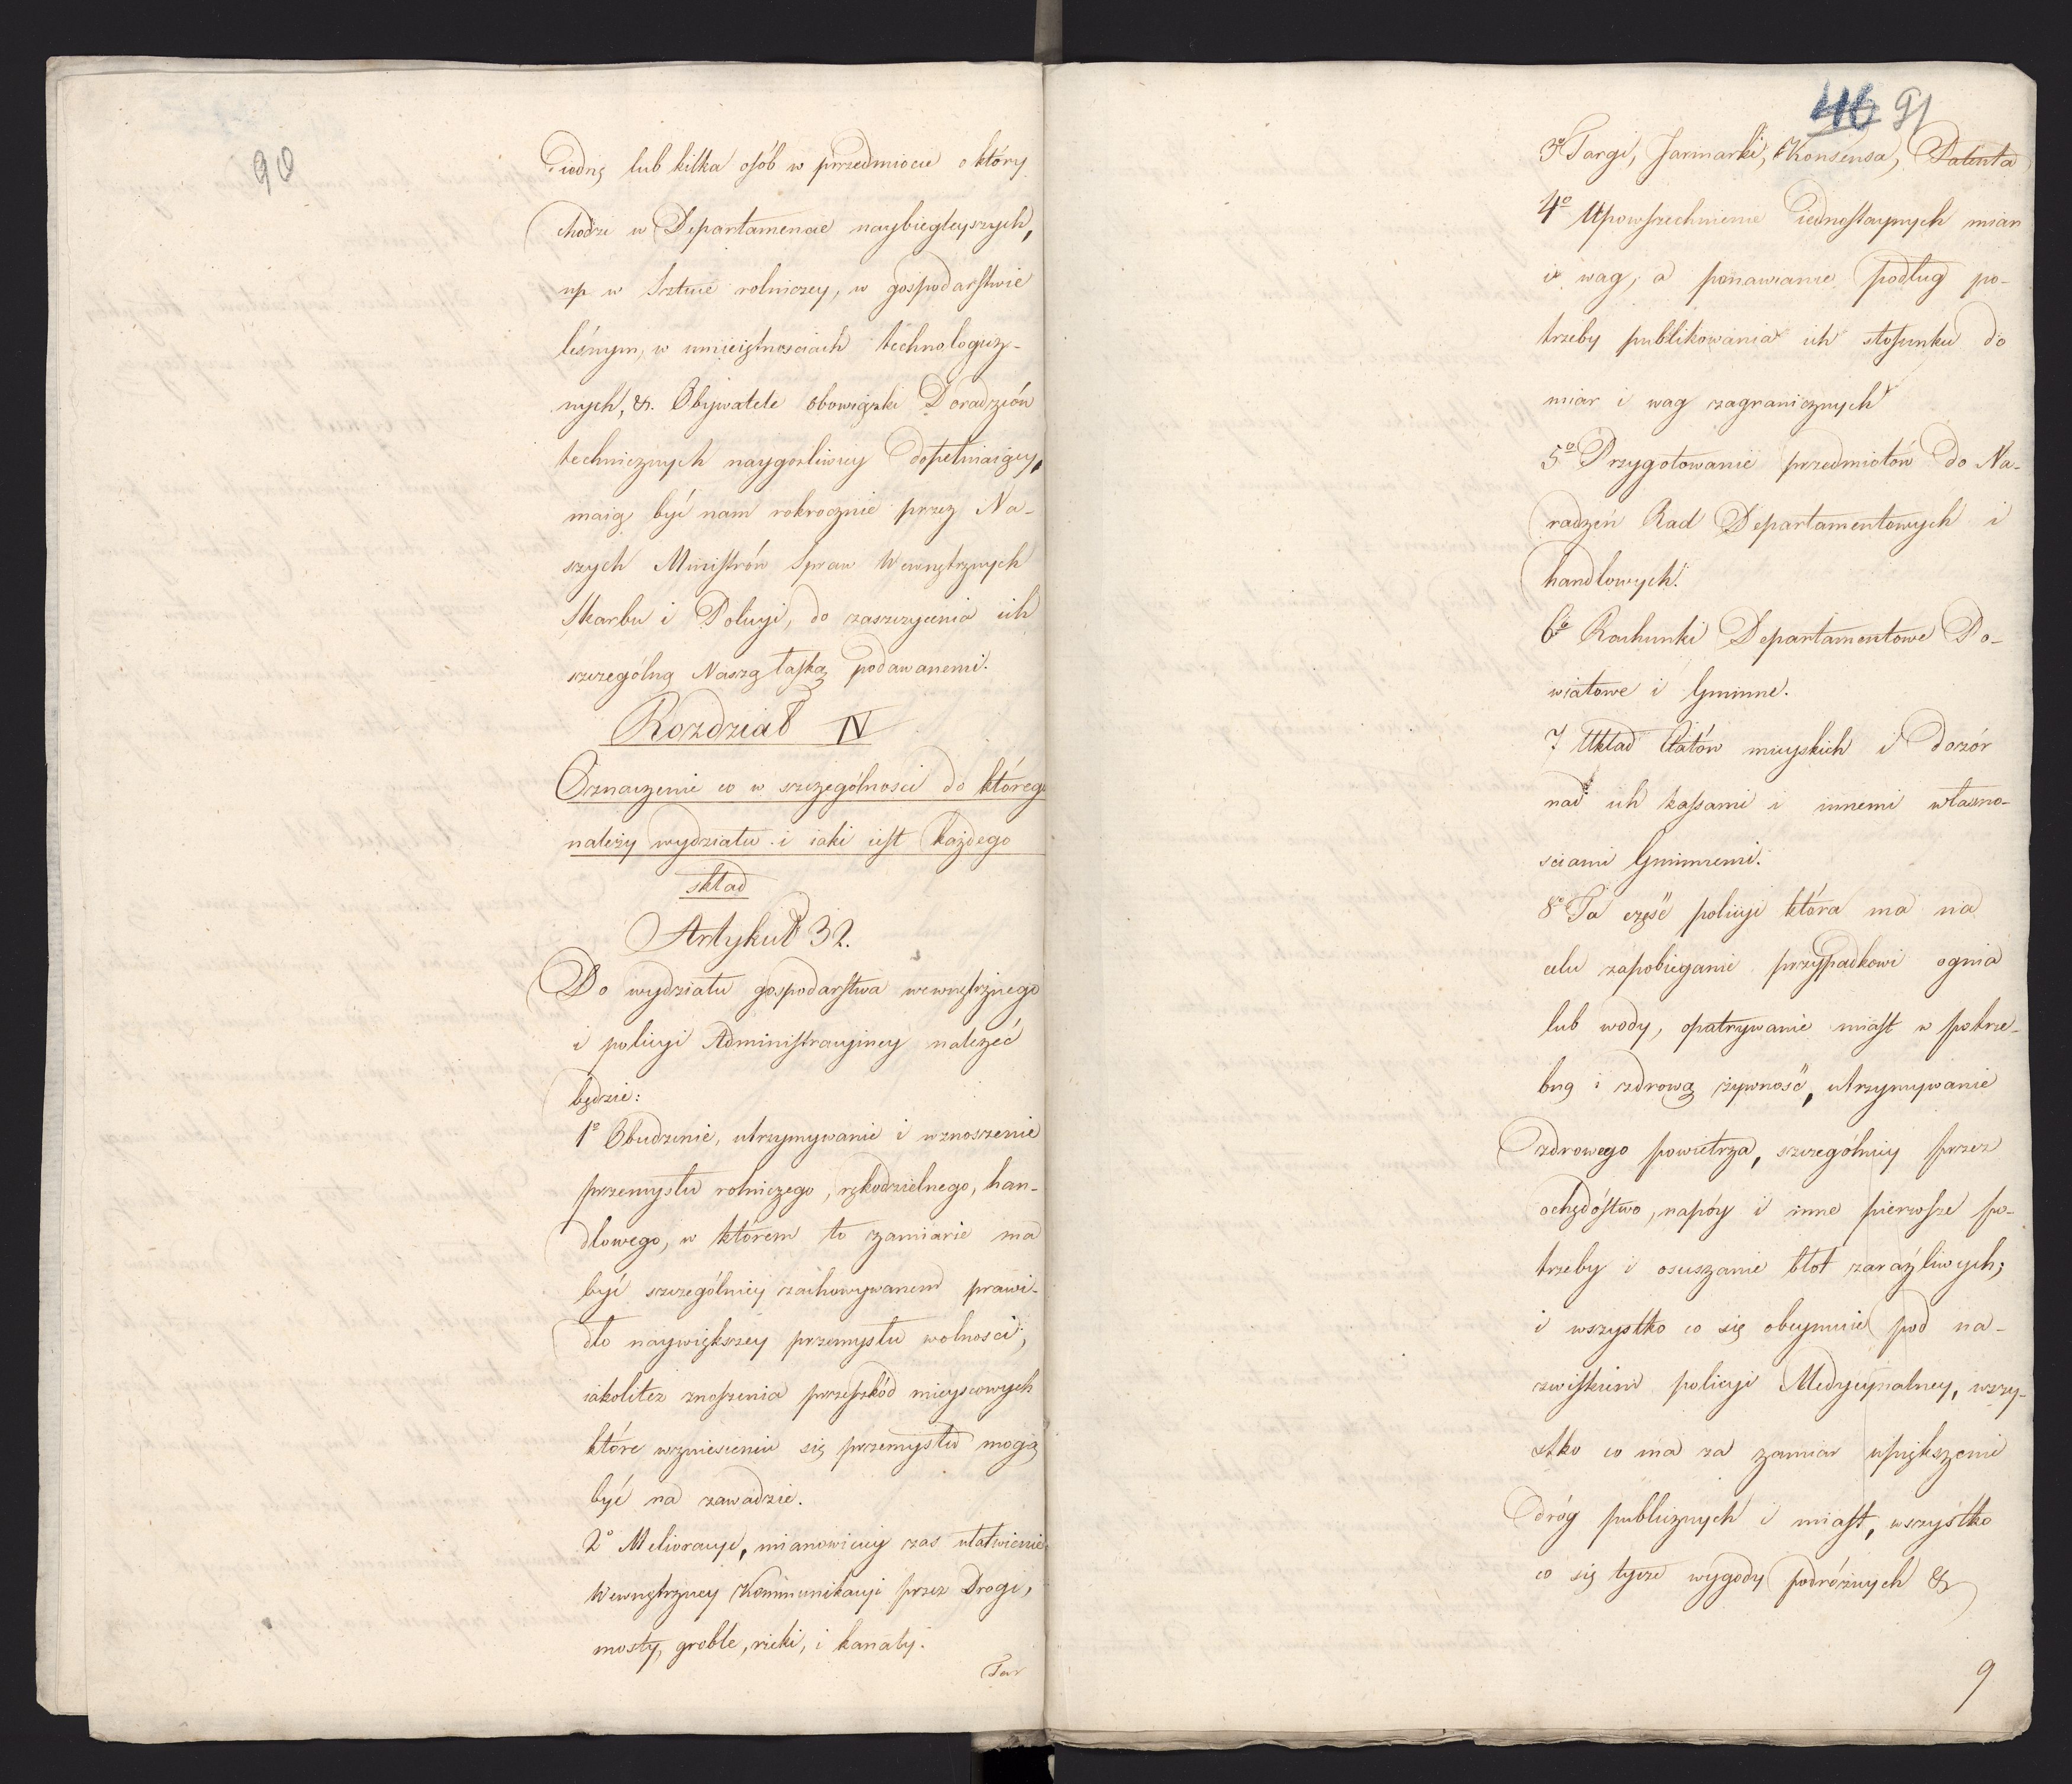 90
iedną lub kilka osób w przedmiocie o który
chodzi w Departamencie naybiegleyszych,
np w sztuce rolniczey, w gospodarstwie
leśnym, w umieiętnościach technologicz-
nych, &. Obywatele obowiązki Doradzców
technicznych naygorliwiey dopełniaiący,
maią być nam rokrocznie przez Na-
szych Ministrów Spraw Wewnętrznych
Skarbu i Policyi, do zaszczycenia ich
szczególną Naszą łaską podawanemi.
Rozdział IV
Oznaczenie co w szczególności do któreg
należy wydziału i iaki iest każdego
skład
Artykuł 32.
Do wydziału gospodarstwa wewnętrznego
i policyi Administracyiney należeć
będzie:
1º Obudzenie, utrzymywanie i wznoszenie
przemysłu rolniczego, rękodzielnego, han-
dlowego, w którem to zamiarie ma
być szczególniey zachowywanem prawi-
dło naywiększey przemysłu wolności,
iakoliteż znoszenia przeszkód mieyscowych
które wzniesieniu się przemysłu mogą
być na zawadzie.
2º Melioracye, mianowiciey zas ułatwienie
Wewnętrzney Kommunikacyi przez Drogi,
mosty, groble, rzeki, i kanały.
Tar
46 91
3º Targi, Jarmarki, Konsensa, Patenta
4º Upowszechnienie iednostaynych miar
i wag, a ponawianie podług po-
trzeby publikowania ich stosunku do
miar i wag zagranicznych
5º Przygotowanie przedmiotów do Na-
radzeń Rad Departamentowych i
handlowych.
6º Rachunki Departamentowe Po-
wiatowe i Gminne.
7 Układ Etatów mieyskich i dozór
nad ich kassami i innemi własno-
sciami Gminnemi.
8º Ta część policyi która ma na
celu zapobieganie przypadkowi ognia
lub wody, opatrywanie miast w potrze-
bną i zdrową żywność, utrzymywanie
zdrowego powietrza, szczególniey przez
ochędóstwo, napóy i inne pierwsze po-
trzeby i osuszanie błot zaraźliwych;
i wszystko co się obeymuie pod na-
zwiskiem policyi Medycynalney, wszy-
stko co ma za zamiar upiększenie
dróg publicznych i miast, wszystko
co się tycze wygody podróżnych &
9